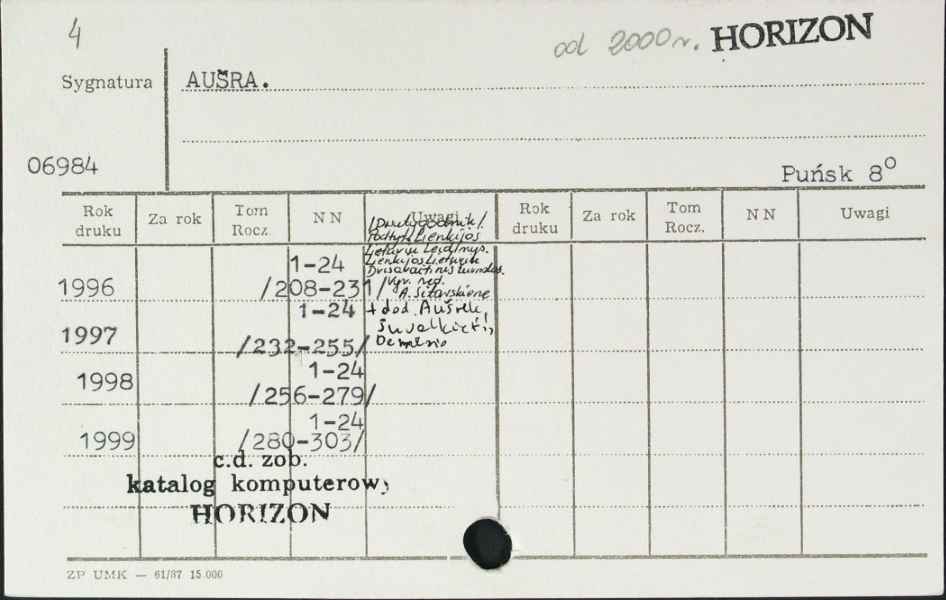 4
od 2000 r. HORIZON
Sygnatura
AUŠRA.
06984
Puńsk 8°
Rok druku Za rok Tom Rocz. NN Uwagi Rok druku Za rok Tom Rocz. NN Uwagi
/Dwutygodnik/.
Podtyt. Lienkijos
Lietuvių Leidinys.
1-24 Lienkijos Lietuvių
1996 /208-231/ Vyr. red.
1997 1-24 + dod. Aušrelė,
/232-255/
1998 1-24
/256-279/
1999 1-24
/280-303/
c.d. zob.
katalog komputerowy
HORIZON
ZP UMK — 61/87 15.000